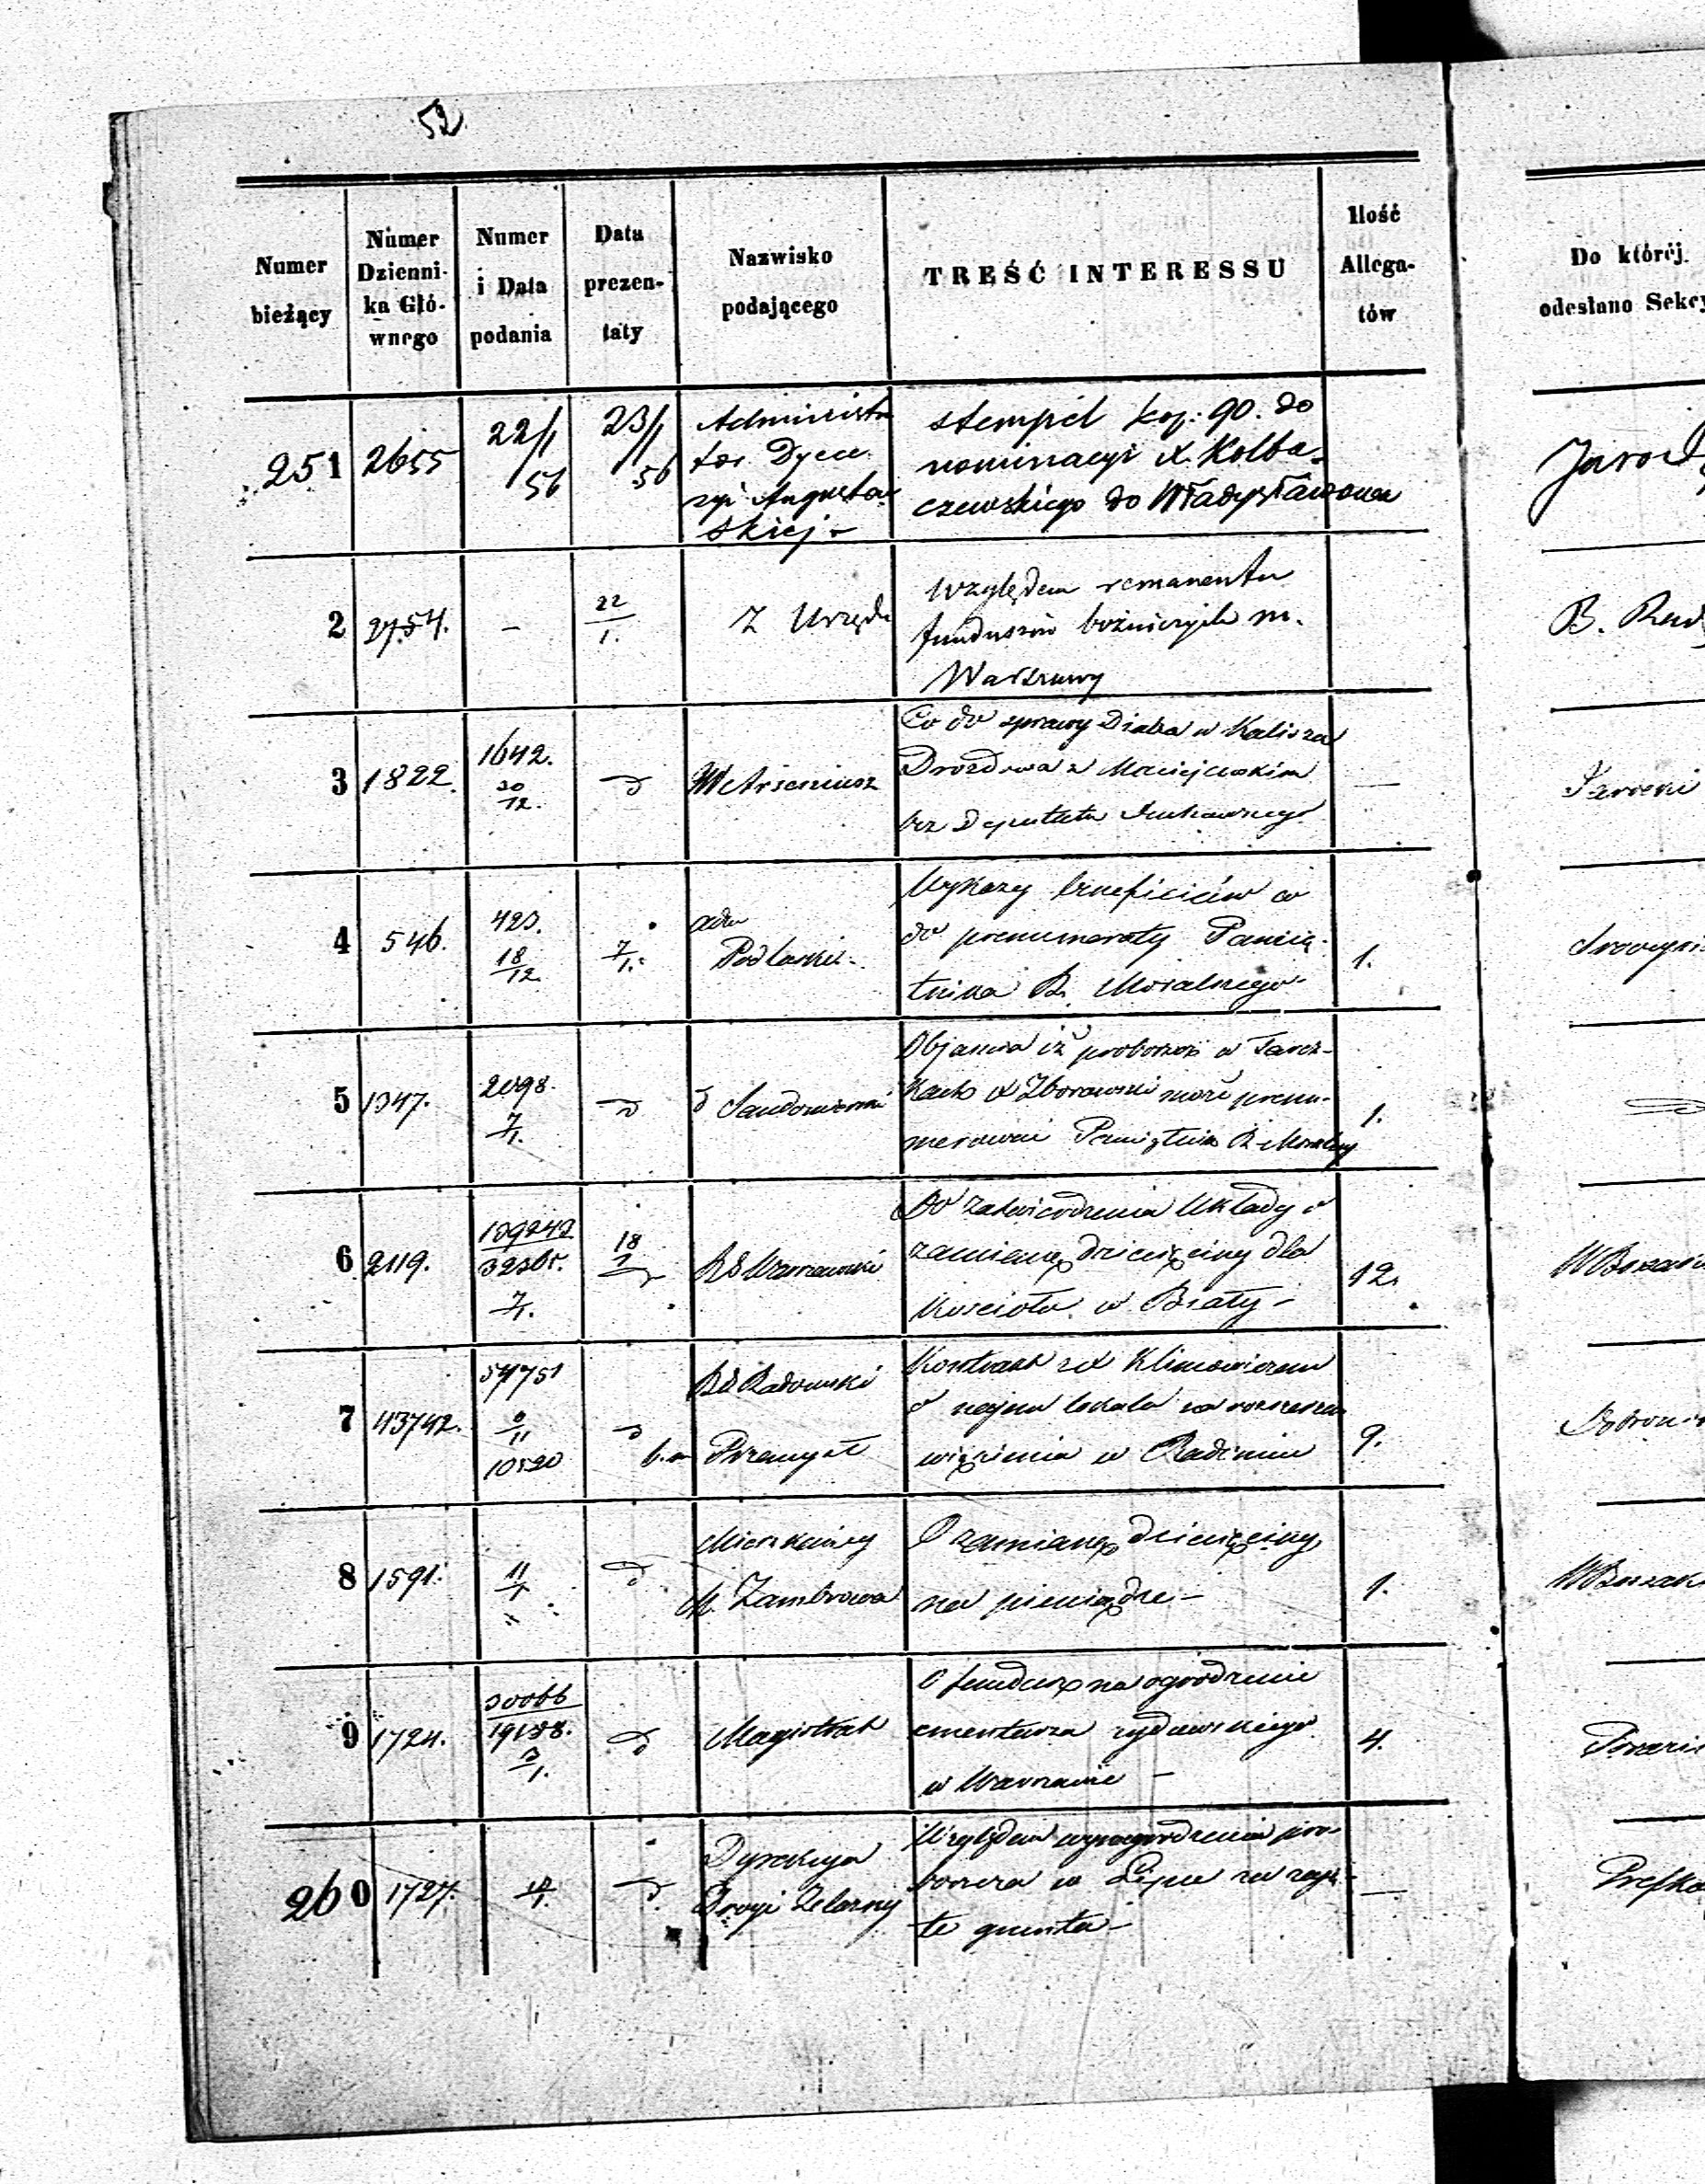 52
Numer bieżący
Numer Dzienni- ka Głó- wnego
Numer i Data podania
Data prezen- taty
Nazwisko podającego
TREŚĆ INTERESSU
Ilość Allega- tów
Do której odesłano Sekcy
251 2655 22/1 56 23/1 56
Administra
tor Dyece
zyi Augustow
skiej -
stempel kop: 90. do
nominacyi X. Kolba-
czewskiego do Władysławowa
2 2754. - 22/1.
Z Urzędu
Względem remanentu
funduszów bożniczych m.
Warszawy
B. Rud
3 1822. 1642. 30/12.
Arseniusz
Co do sprawy Diaka w Kaliszu
Drozdowa z Maciejewskim
bez Deputata Duchownego
—
4 546. 423. 18/12 7/1.
adm
Podlaski -
Wykazy beneficiów co
do prenumeraty Pamię-
tnika R. Moralnego -
1.
5 1347. 2098. 7/1.
d Sandomierski
Objawia iż proboszcz w Tarcz-
kach X Zborowski może prenu-
merować Pamiętnik R. Moralny
1.
6 2119. 109242 7/1. 18/1
RG Warszawski
Do zatwierdzenia Układy o
zamianę dziesięciny dla
Kościoła w Biały -
12.
7 43742. 54751 10520
RG Radomski
Przemysł
Kontrakt z X Klimowiczem
o najem lokalu na rozszerzen
więzienia w Radomiu
9.
8 1591. 11/1
Mieszkańcy
M. Zambrowa
O zamianę dziesięciny
na pieniądze -
1.
9 1724. 30066 19188. 3/1.
Magistrat
O fundusz na ogrodzenie
cmentarza żydowskiego
w Warszawie -
4.
260 1727.
Dyrekcya
Drogi Żelazny
Względem wynagrodzenia pro-
boszcza w Lipie za zaję-
te grunta -
—